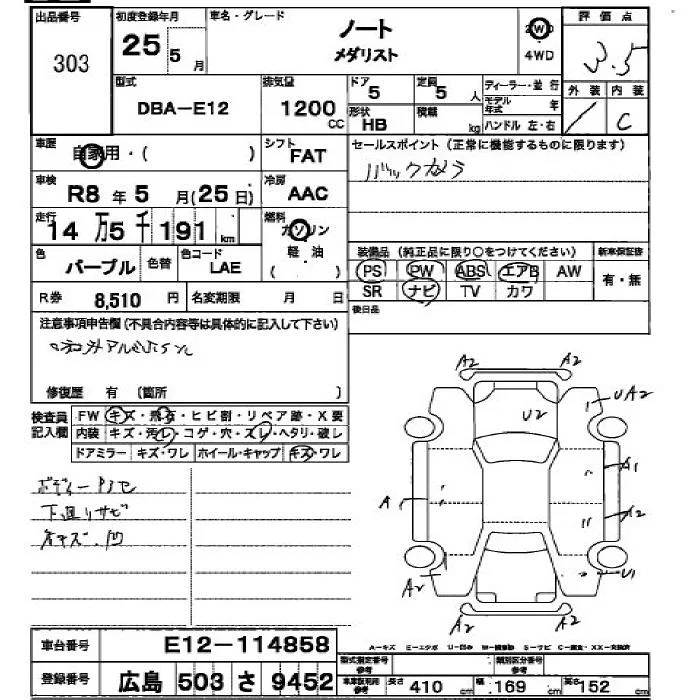 出品番号
303
初度登録年月
25 5 月
車名・グレード
ノート
メダリスト
2WD
4WD
評価点
3.5
外装 内装
C
型式
DBA-E12
排気量
1200 CC
ドア
5
定員
5 人
形状
HB
積載
kg
ディーラー・並行
モデル年式 年
ハンドル 左・右
車歴
自家用・( )
シフト
FAT
セールスポイント (正常に機能するものに限ります)
バックカメラ
車検
R8 年 5 月(25 日)
冷房
AAC
走行
14 万 5 千 191 km
燃料
ガソリン
軽・油
( )
色
パープル
色替
色コード
LAE
装備品 (純正品に限り○をつけてください)
PS PW ABS エアB AW
SR ナビ TV カワ
新車保証書
有・無
R券 8,510 円
名変期限 月 日
後日品
注意事項申告欄 (不具合内容等は具体的に記入して下さい)
修復歴 有 (箇所 )
検査員記入欄
FW キズ・飛石・ヒビ割・リペア跡・X要
内装 キズ・汚レ・コゲ・穴・スレ・ヘタリ・破レ
ドアミラー キズ・ワレ ホイール・キャップ キズ・ワレ
下廻りサビ
キズ.凹
A2 A2
U2
UA2
A1
A
A2
A2
U1
A2 A2
車台番号 E12-114858
登録番号 広島 503 さ 9452
型式指定番号 参考
類別区分番号 参考
長さ 410 cm 幅 169 cm 高さ 152 cm